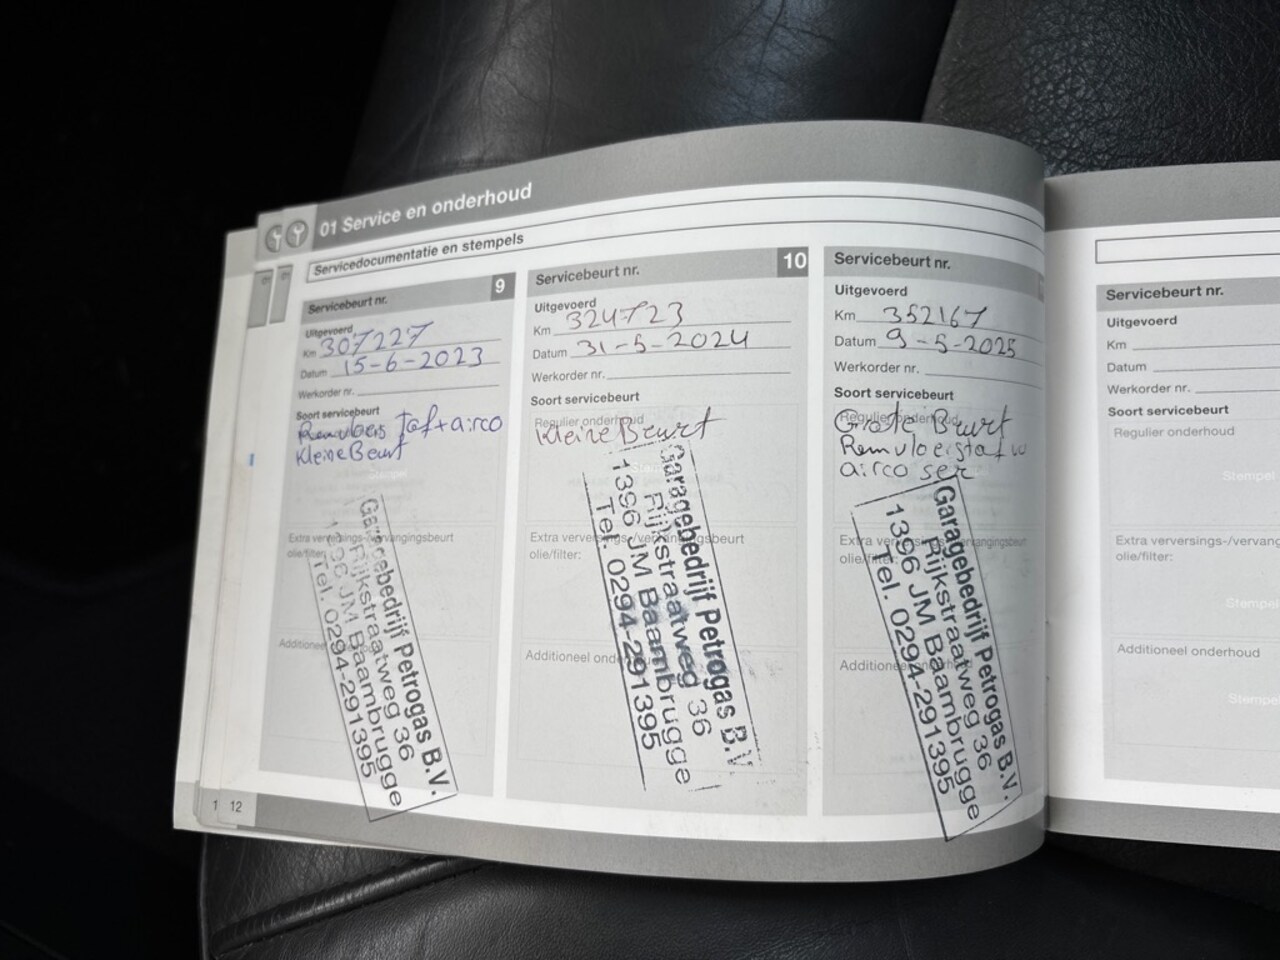 01 Service en onderhoud
Servicedocumentatie en stempels
Servicebeurt nr. 9
Uitgevoerd
Km 307227
Datum 15-6-2023
Werkorder nr.
Soort servicebeurt
Remvloeis taf+airco
Kleine Beurt
Stempel
Extra verversings-/vervangingsbeurt
olie/filter:
Additioneel onderhoud
Garagebedrijf Petrogas B.V.
Rijkstraatweg 36
1396 JM Baambrugge
Tel. 0294-291395
Servicebeurt nr. 10
Uitgevoerd
Km 324723
Datum 31-5-2024
Werkorder nr.
Soort servicebeurt
Regulier onderhoud
Kleine Beurt
Stempel
Extra verversings-/vervangingsbeurt
olie/filter:
Additioneel onderhoud
Garagebedrijf Petrogas B.V.
Rijkstraatweg 36
1396 JM Baambrugge
Tel. 0294-291395
Servicebeurt nr.
Uitgevoerd
Km 352167
Datum 9-5-2025
Werkorder nr.
Soort servicebeurt
Regulier onderhoud
Grote Beurt
Remvloeistaf
airco ser
Extra verversings-/vervangingsbeurt
olie/filter:
Additioneel onderhoud
Garagebedrijf Petrogas B.V.
Rijkstraatweg 36
1396 JM Baambrugge
Tel. 0294-291395
Servicebeurt nr.
Uitgevoerd
Km
Datum
Werkorder nr.
Soort servicebeurt
Regulier onderhoud
Stempel
Extra verversings-/vervang
olie/filter:
Stempel
Additioneel onderhoud
Stempe
1 12